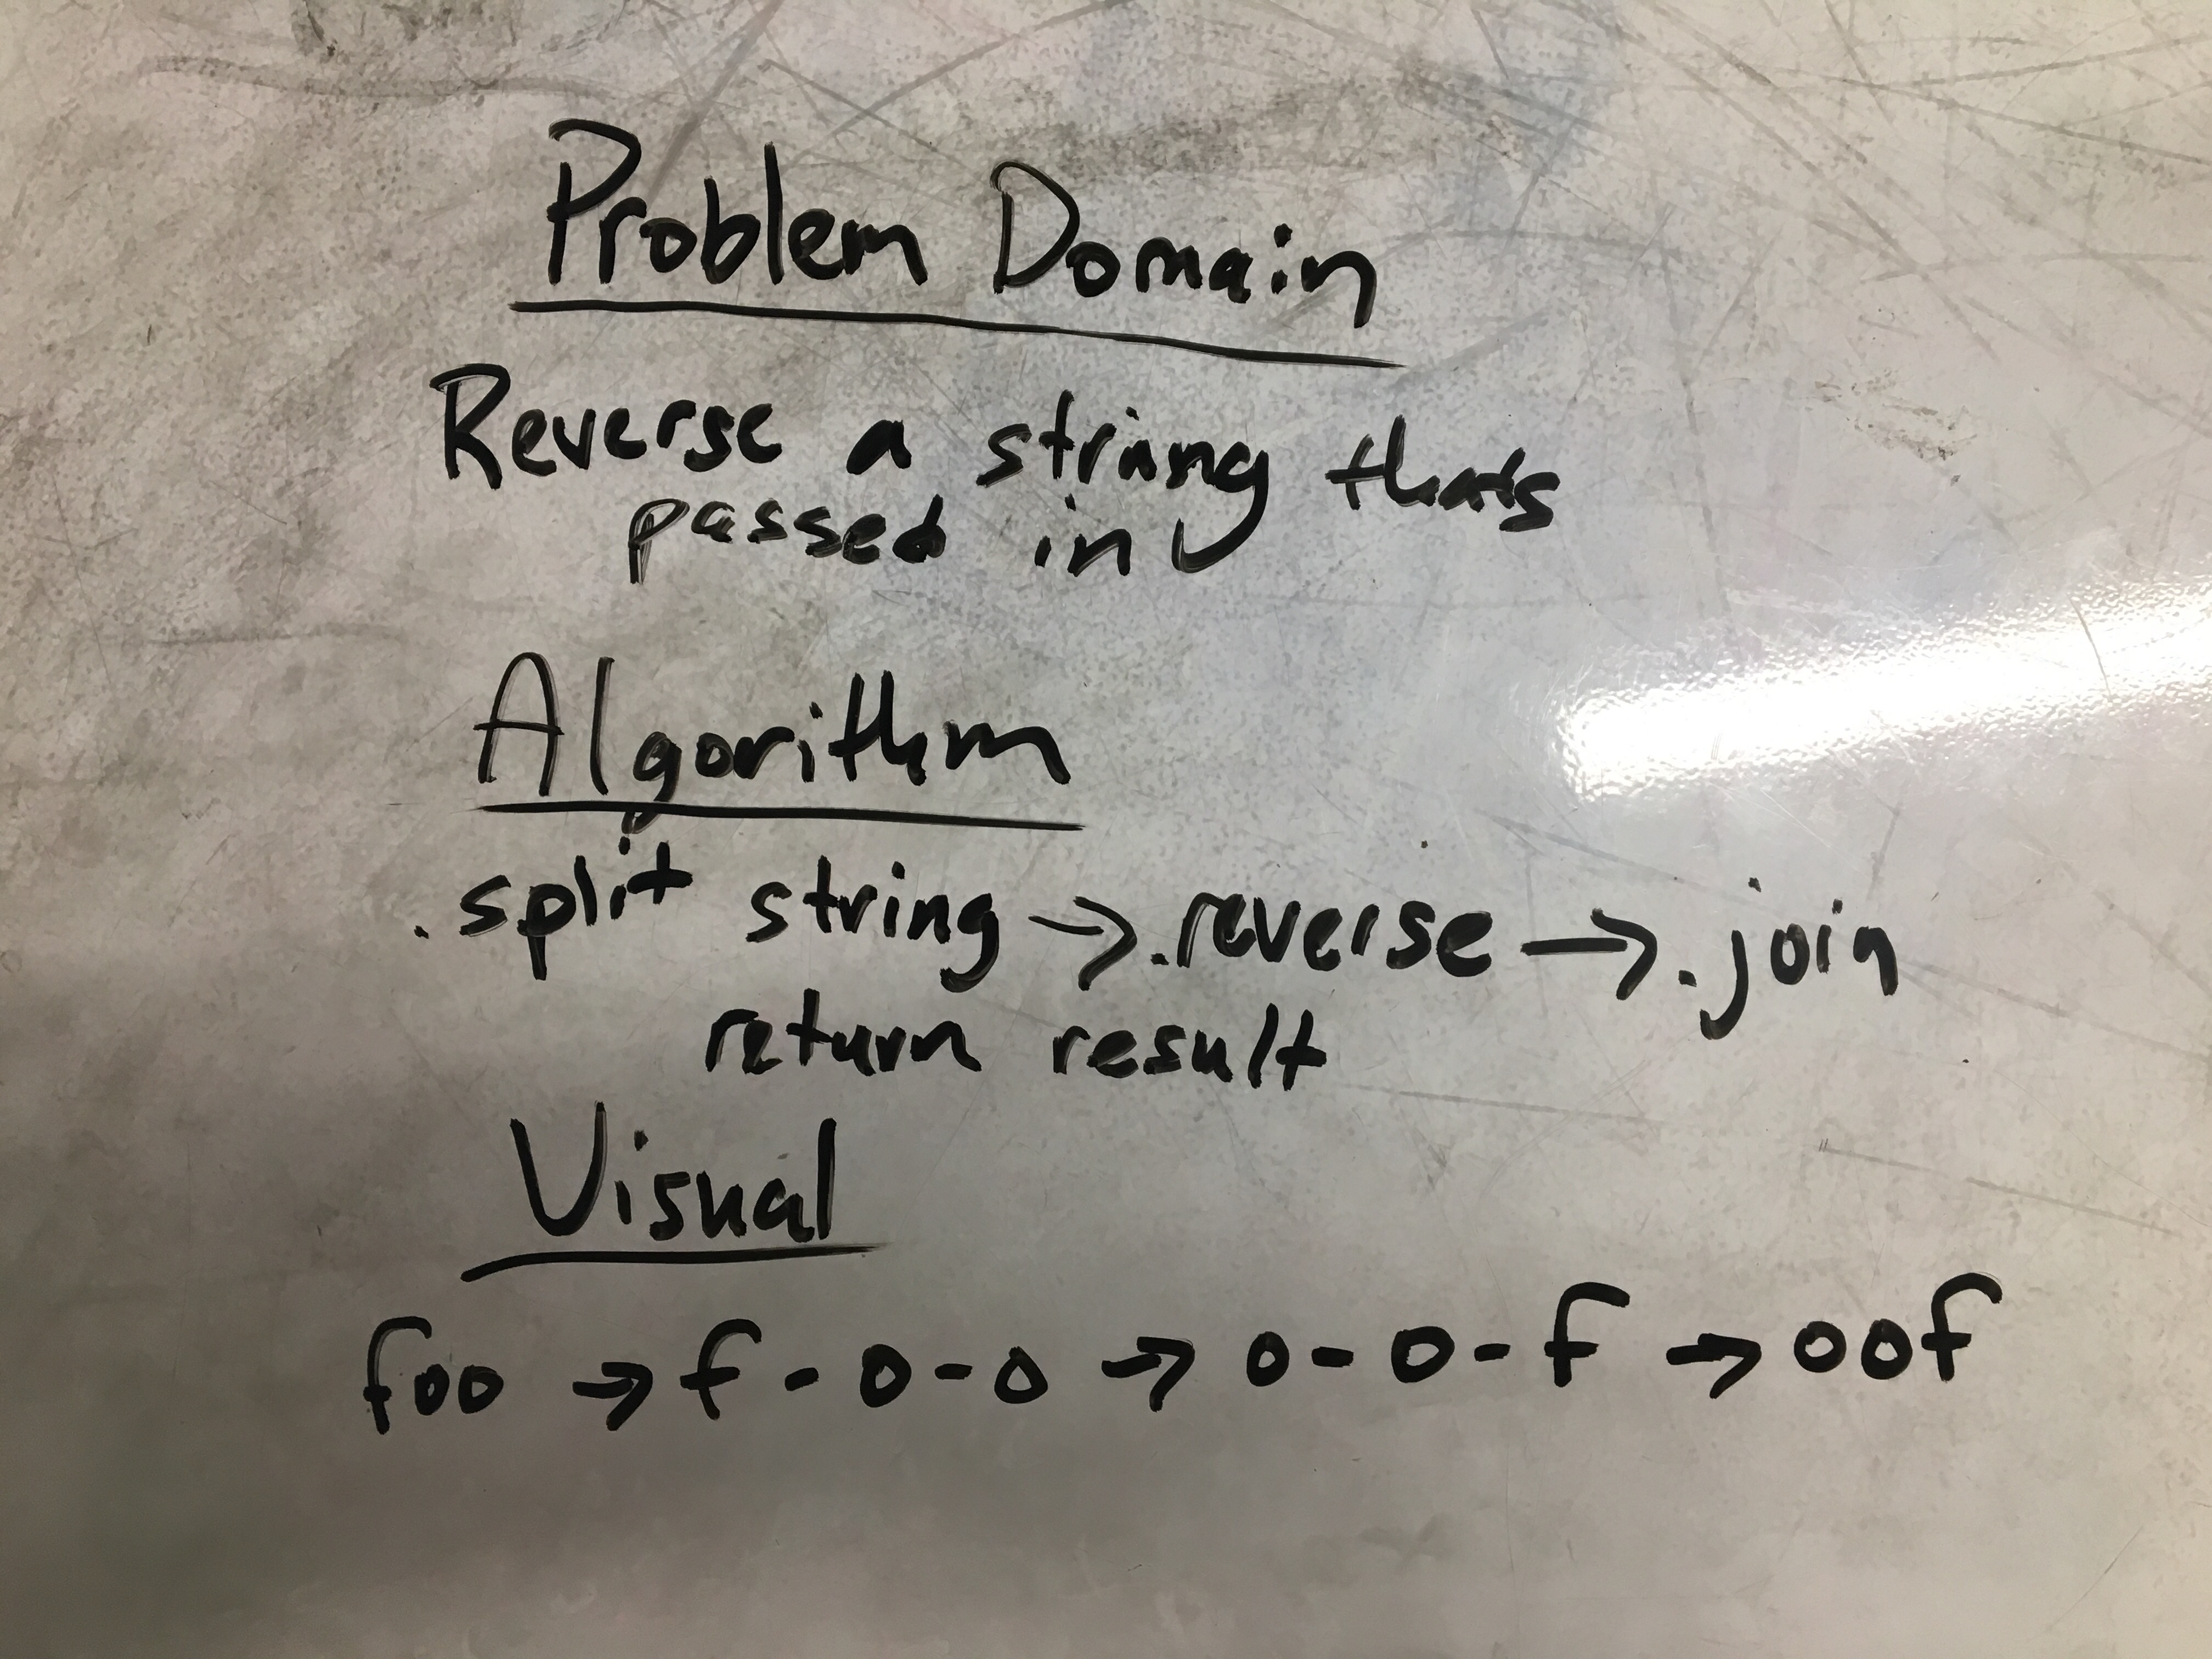 Problem Domain
Reverse a string thats
passed in
Algorithm
.split string → .reverse → .join
return result
Visual
foo → f - o - o → o - o - f → oof